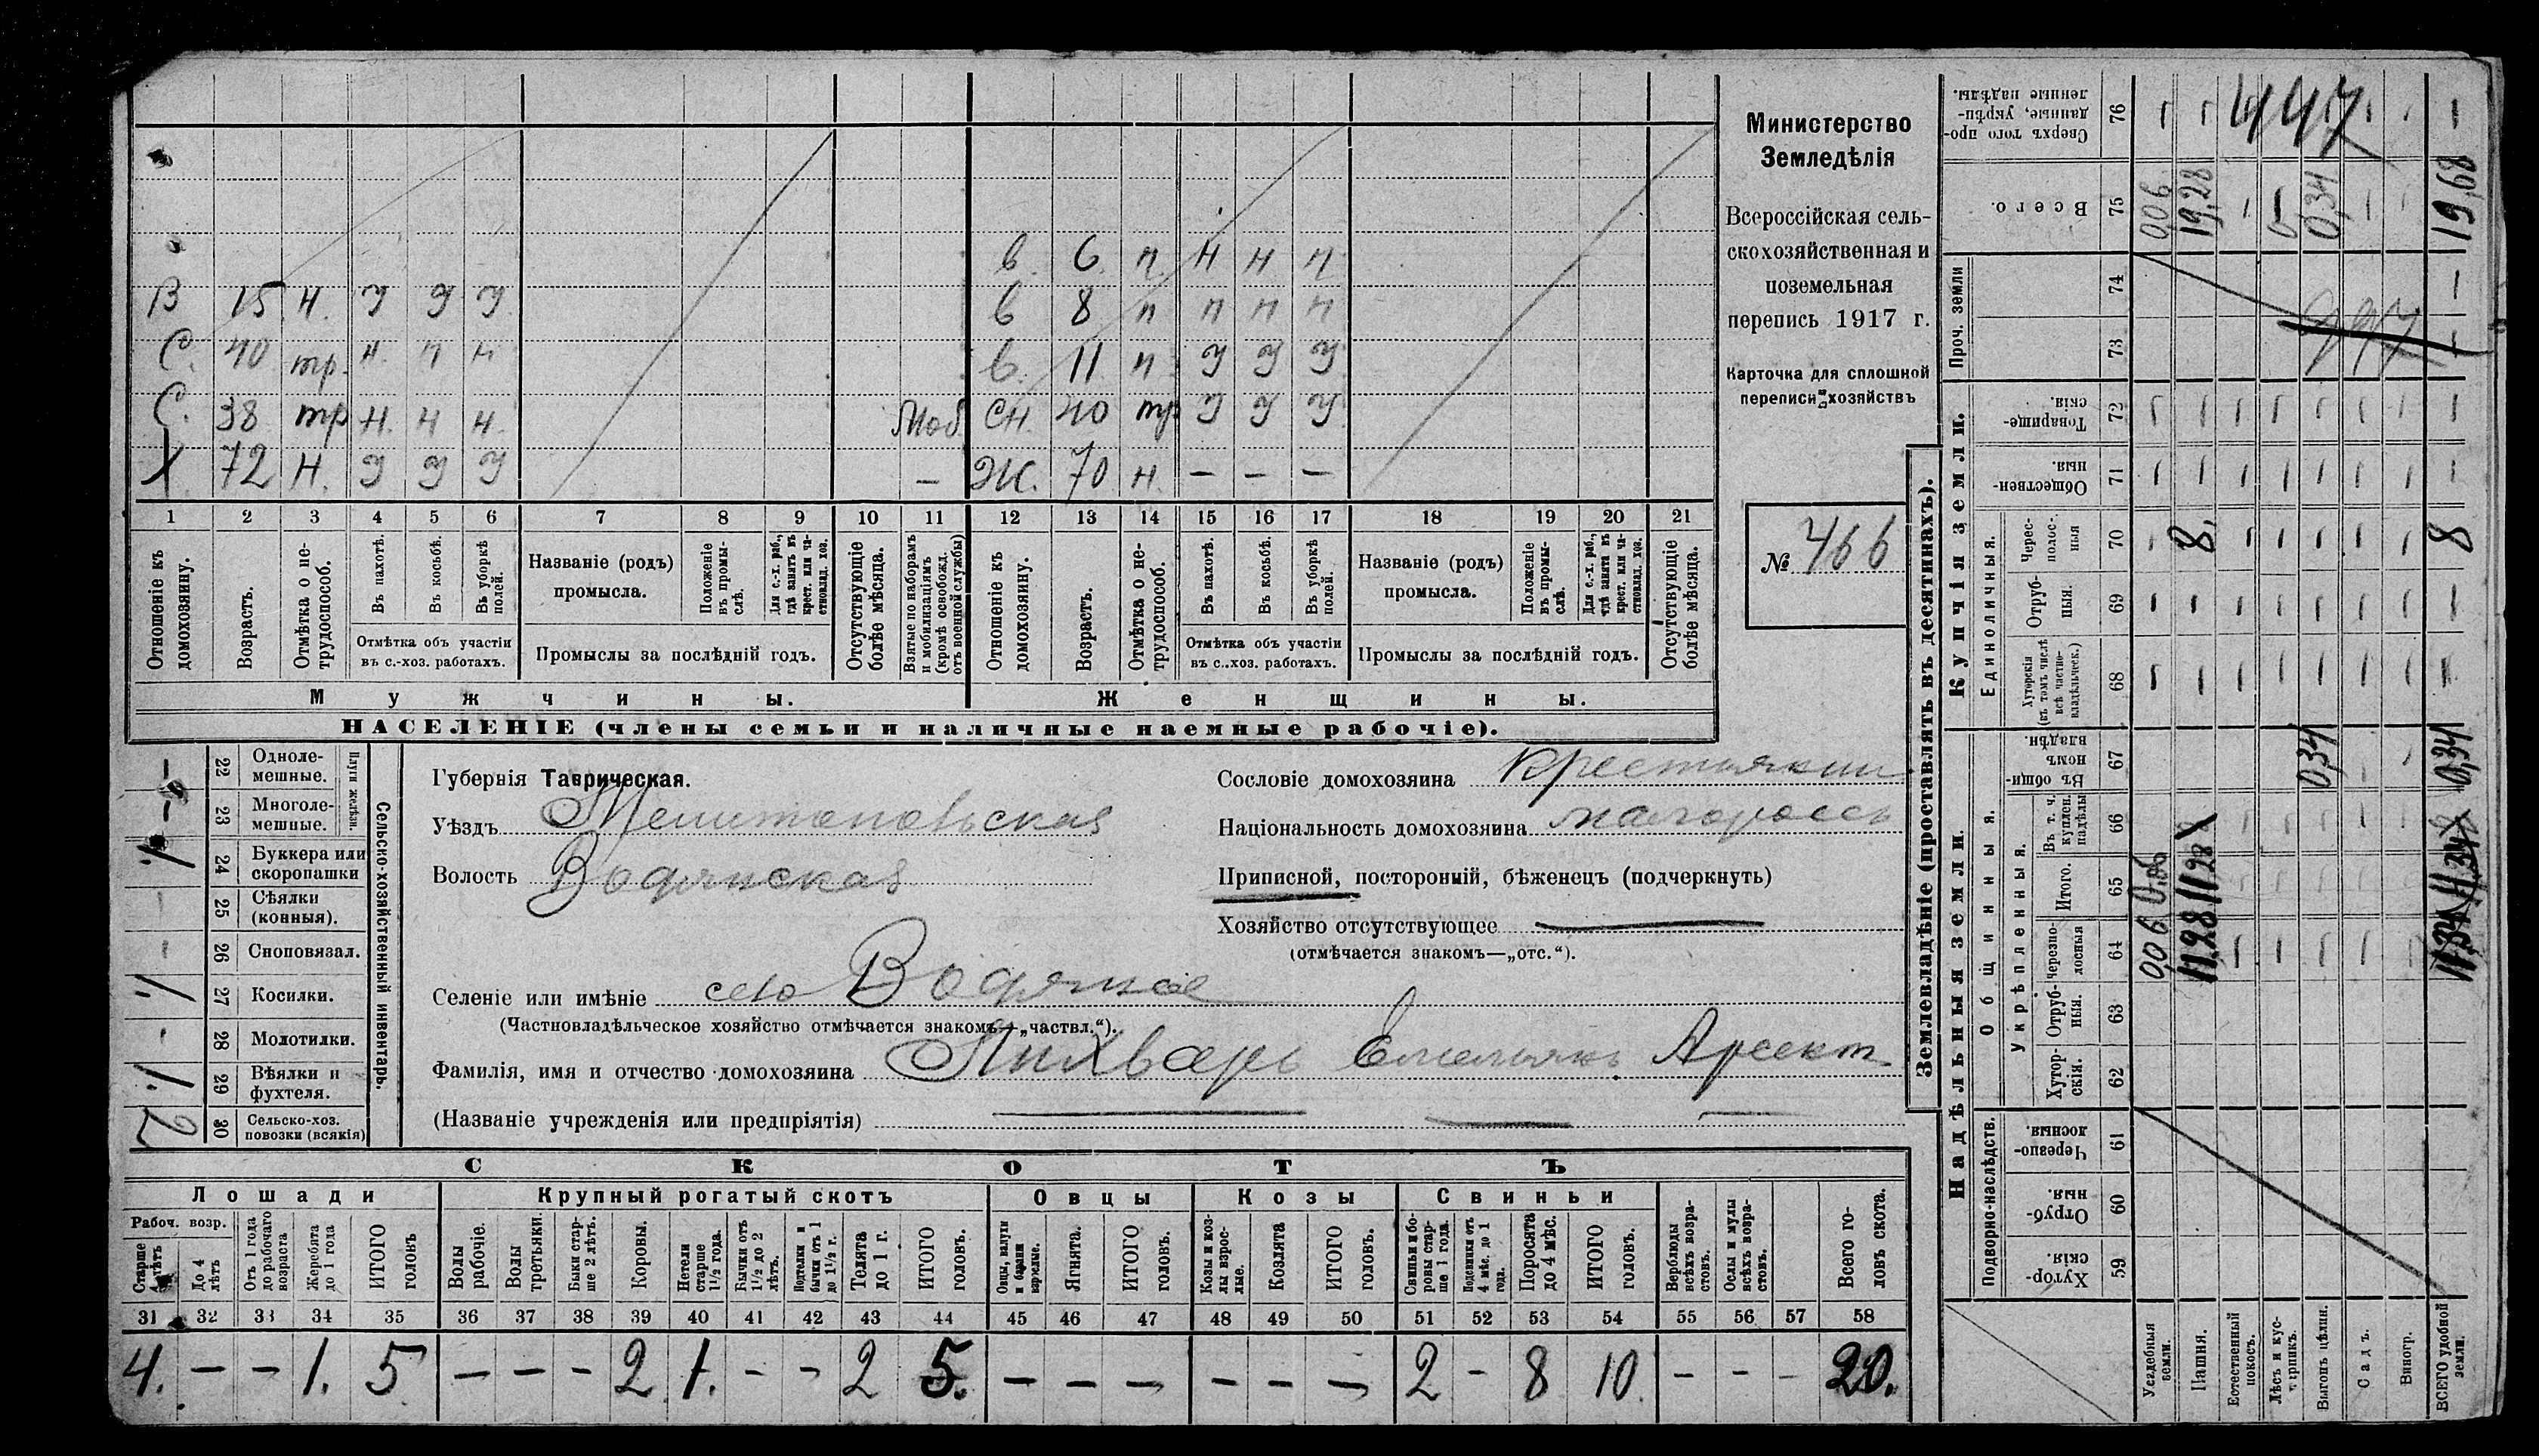 В 6 п Н Н п
В 15 Н. У У У в 8 п п п п
С. 40 тр. н ч н в. 11 п У У У
С. 38 тр Н. Н Н. Моб СН. 40 тр У У У
Х 72 Н. У У У – Ж. 70 н. – – –
1 2 3 4 5 6 7 8 9 10 11 12 13 14 15 16 17 18 19 20 21
Отношеніе къ домохозяину.
Возрастъ.
Отмѣтка о нетрудоспособ.
Въ пахотѣ.
Въ косьбѣ.
Въ уборкѣ полей.
Отмѣтка объ участіи
въ с.-хоз. работахъ.
Названіе (родъ)
промысла.
Положеніе въ промыслѣ.
Для с.-х. раб., гдѣ занятъ въ крест. или частновлад. хоз.
Промыслы за послѣдній годъ.
Отсутствующіе болѣе мѣсяца.
Взятые по наборамъ и мобилизаціямъ (кромѣ освобожд. отъ военной службы)
Отношеніе къ домохозяину.
Возрастъ.
Отмѣтка о нетрудоспособ.
Въ пахотѣ.
Въ косьбѣ.
Въ уборкѣ полей.
Отмѣтка объ участіи
въ с..хоз. работахъ.
Названіе (родъ)
промысла.
Положеніе въ промыслѣ.
Для с.-х. раб., гдѣ занята въ крест. или частновлад. хоз.
Промыслы за послѣдній годъ.
Отсутствующіе болѣе мѣсяца.
Мужчины.
Женщины.
НАСЕЛЕНІЕ (члены семьи и наличные наемные рабочіе).
Министерство
Земледѣлія
Всероссійская сель-
скохозяйственная и
поземельная
перепись 1917 г.
Карточка для сплошной
переписи хозяйствъ
№ 466
Сельско-хозяйственный инвентарь.
Плуги желѣзн.
– 22 Однолемешные.
– 23 Многолемешные.
1 24 Буккера или скоропашки
25 Сѣялки (конныя).
26 Сноповязал.
1. 27 Косилки.
28 Молотилки.
1. 29 Вѣялки и фухтеля.
2 30 Сельско-хоз. повозки (всякія)
Губернія Таврическая.
Уѣздъ Мелитопольская
Волость Водянская
Селеніе или имѣніе село Водяное
(Частновладѣльческое хозяйство отмѣчается знакомъ—„частвл.“).
Фамилія, имя и отчество домохозяина Лихварь Емельянъ Арсент
(Названіе учрежденія или предпріятія)
Сословіе домохозяина крестьянин
Національность домохозяина малороссъ
Приписной, посторонній, бѣженецъ (подчеркнуть)
Хозяйство отсутствующее
(отмѣчается знакомъ—„отс.“).
СКОТЪ
Лошади Крупный рогатый скотъ Овцы Козы Свиньи
Рабоч. возр.
Старше 4 лѣтъ
До 4 лѣтъ
Отъ 1 года до рабочаго возраста
Жеребята до 1 года
ИТОГО головъ
Волы рабочіе.
Волы третьяки.
Быки старше 2 лѣтъ.
Коровы.
Нетели старше 1½ года.
Бычки отъ 1½ до 2 лѣтъ.
Подтелки и бычки отъ 1 до 1½ г.
Телята до 1 г.
ИТОГО головъ.
Овцы, валухи и бараны взрослые.
Ягнята.
ИТОГО головъ.
Козы и козлы взрослые.
Козлята
ИТОГО головъ.
Свиньи и боровы старше 1 года.
Подсвинки отъ 4 мѣс. до 1 года.
Поросята до 4 мѣс.
ИТОГО головъ.
Верблюды всѣхъ возрастовъ.
Ослы и мулы всѣхъ возрастовъ.
Всего головъ скота.
31 32 33 34 35 36 37 38 39 40 41 42 43 44 45 46 47 48 49 50 51 52 53 54 55 56 57 58
4. – – 1. 5 – – – 2 1. – – 2 5. – – – – – – 2 – 8 10 – – – 20.
Землевладѣніе (проставлять въ десятинахъ).
Надѣльныя земли.
Купчія земли.
Проч. земли
Подворно-наслѣдств.
Общинныя.
Укрѣпленныя.
Единоличныя.
Хуторскія 59
Отрубныя. 60
Черезполосныя. 61
Хуторскія. 62
Отрубныя. 63
Черезполосныя 64
Итого. 65
Въ т. ч. куплен. надѣлы 66
Въ общинномъ владѣн. 67
Хуторскія (въ томъ числѣ всѣ частновладѣльческ.) 68
Отрубныя. 69
Чересполосныя 70
Общественныя. 71
Товарищескія. 72
73
74
Всего. 75
Сверхъ того проданные, укрѣпленные надѣлы. 76
Усадебныя земли.
Пашня.
Естественный покосъ.
Лѣсъ и кустарникъ.
Выгонъ цѣлин.
Садъ.
Виногр.
ВСЕГО удобной земли.
0,06 0,06 0,06
11,28 11,28 8, 19,28
0,34 0,34
11,34 11,34 0,34 8 19,68
447